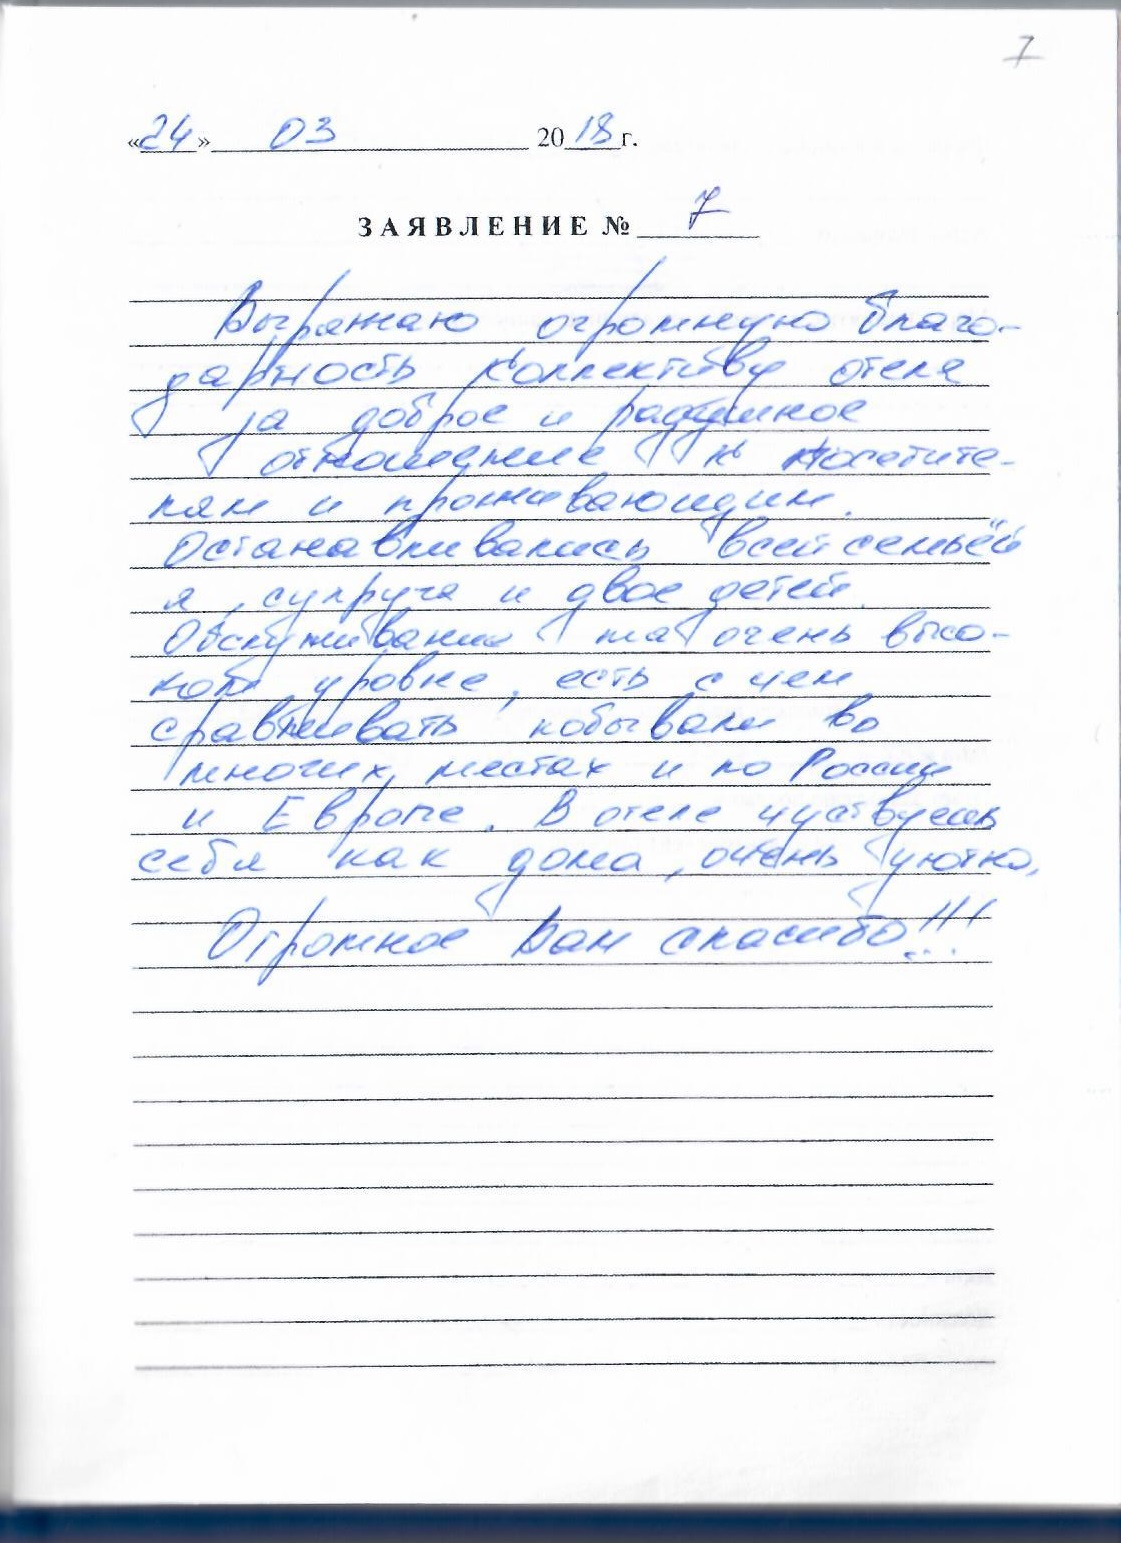 7
«24» 03 2018 г.
ЗАЯВЛЕНИЕ № 7
Выражаю огромную благо-
дарность коллективу отеля
за доброе и радушное
отношение к посетите-
лям и проживающим.
Останавливались всей семьёй
я, супруга и двое детей.
Обслуживание на очень высо-
ком уровне, есть с чем
сравнивать побывали во
многих местах и по России
и Европе. В отеле чуствуешь
себя как дома, очень уютно,
Огромное Вам спасибо!!!